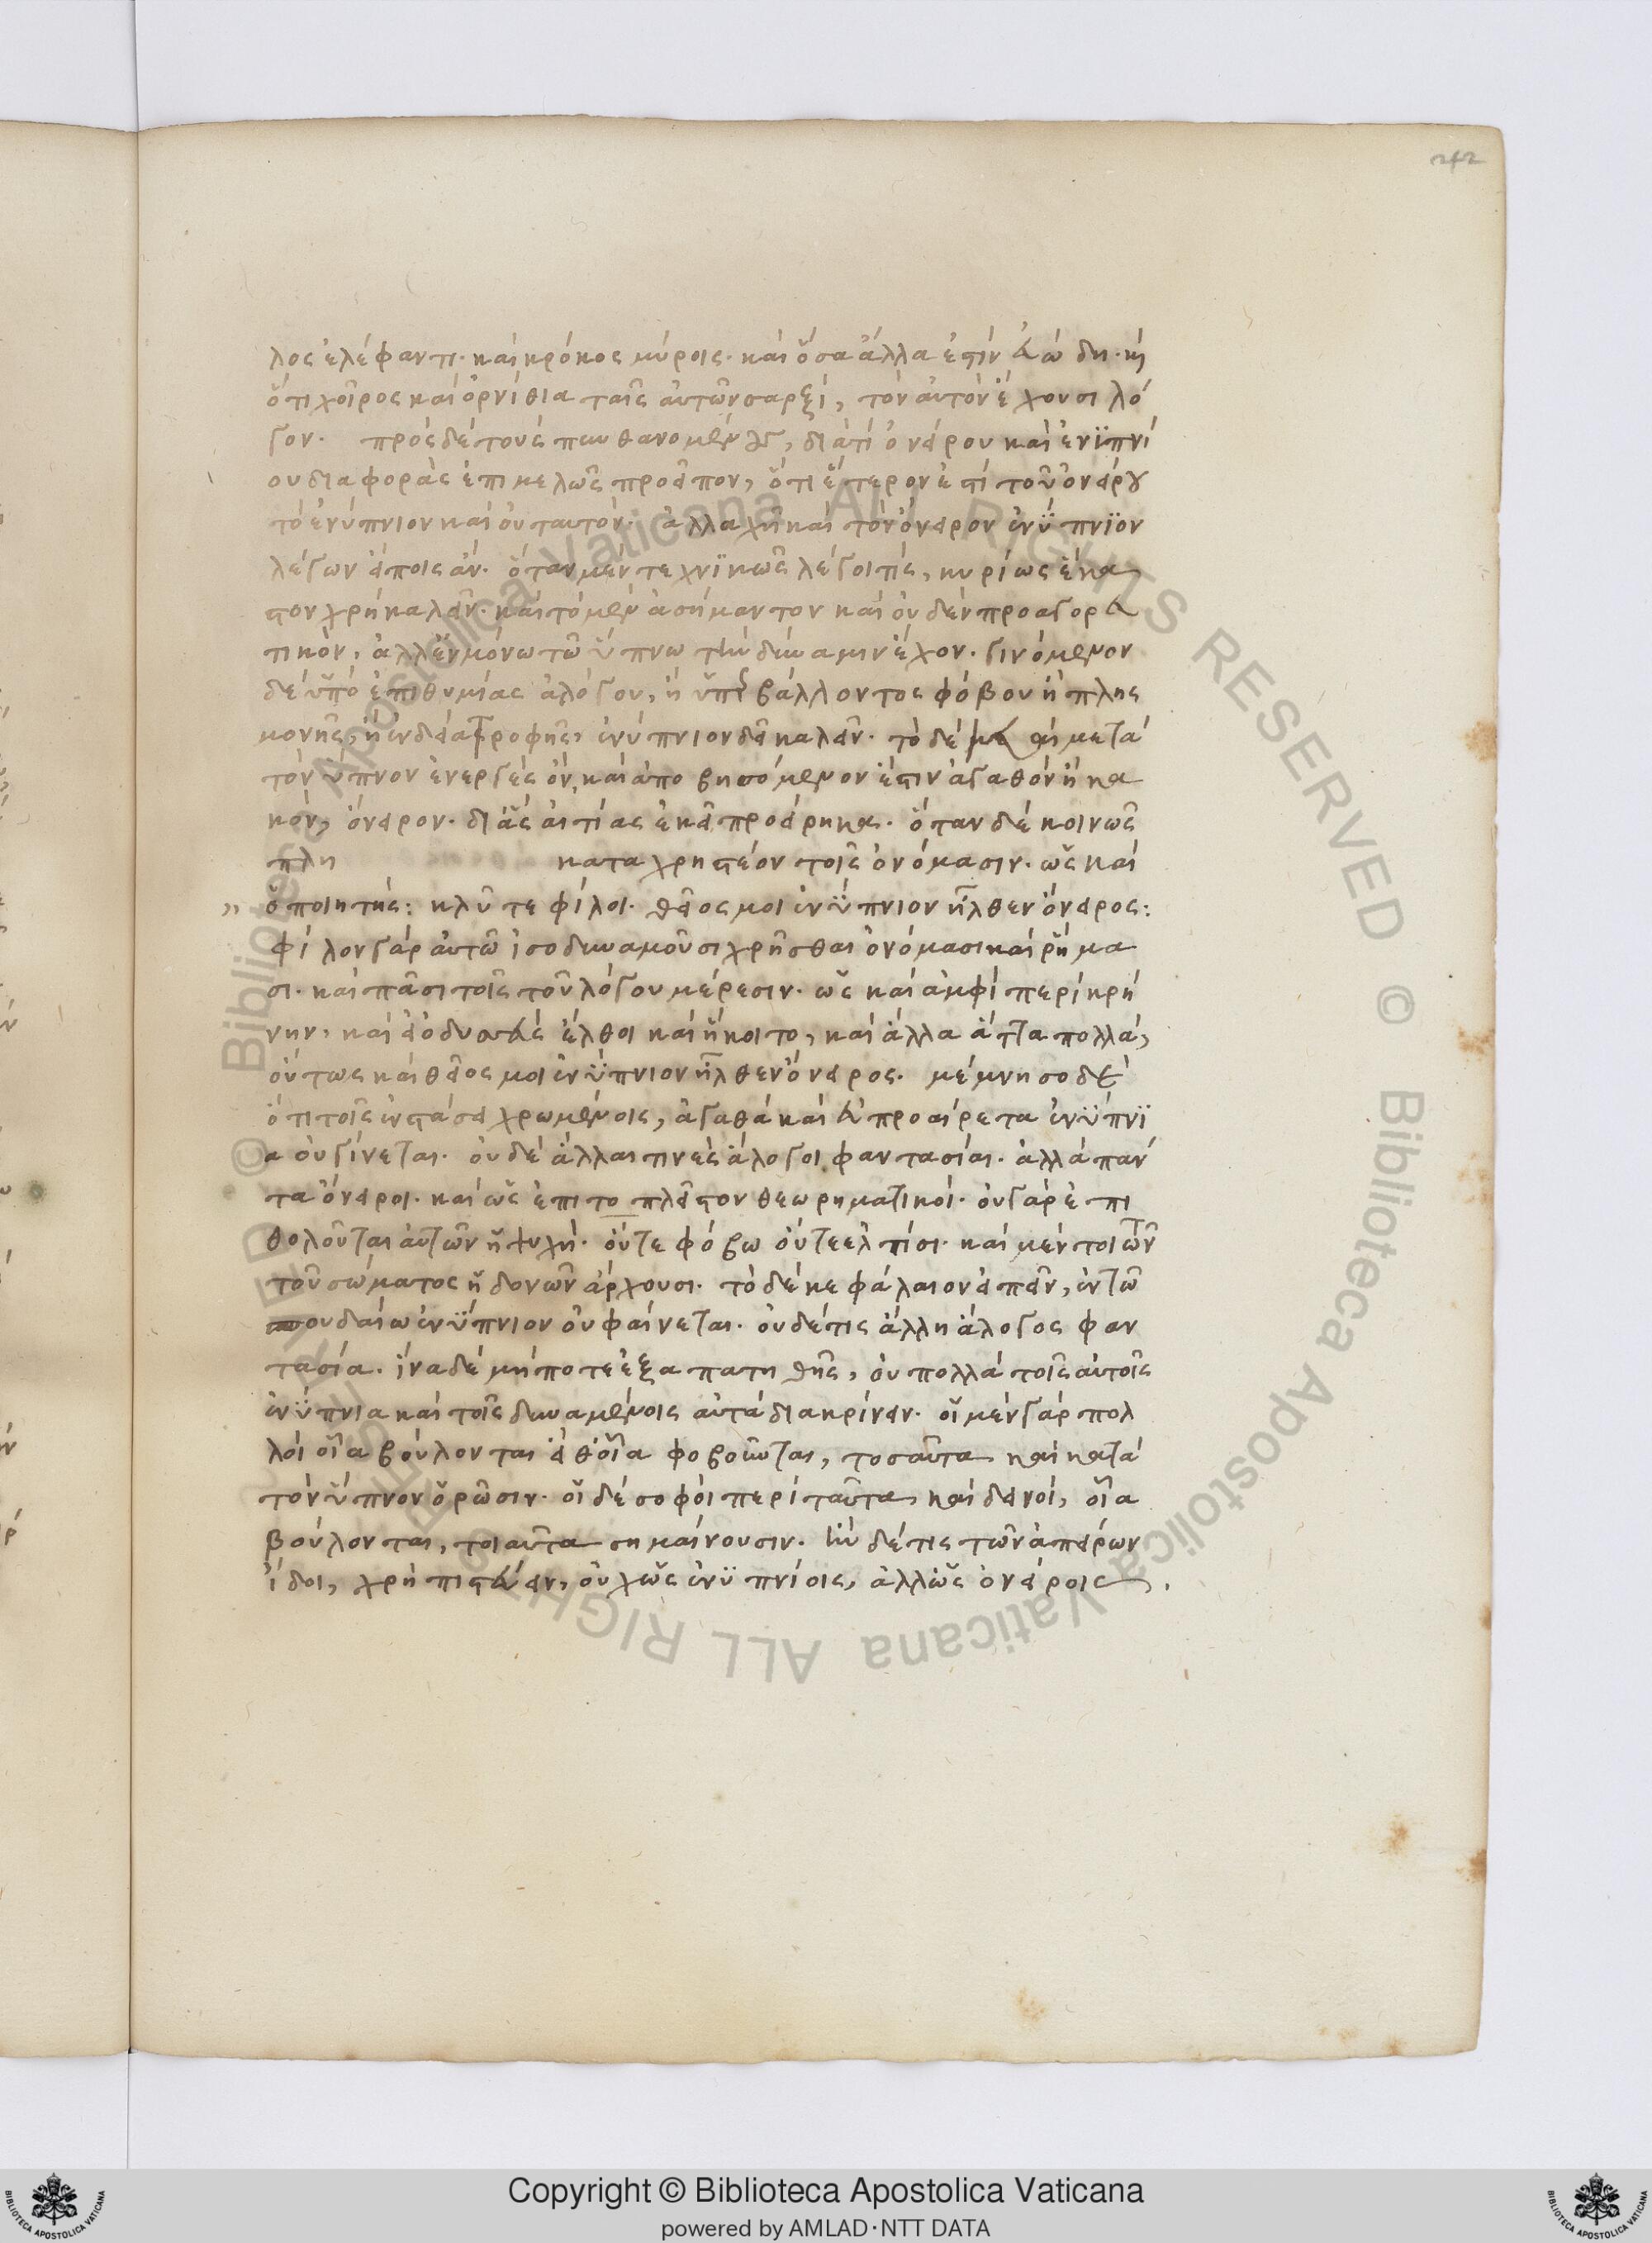 242
λος ἐλέφαντι. καὶ κρόκος μύροις. καὶ ὅσα ἄλλα ἐστὶν εὐώδη. καὶ
ὅτι χοῖρος καὶ ὀρνίθια ταῖς αὐτῶν σαρξί, τὸν αὐτὸν ἔχουσι λό
γον. πρὸς δὲ τοὺς πυνθανομένους, διατί ὀνείρου καὶ ἐνϋπνί
ου διαφορὰς ἐπιμελῶς προεῖπον, ὅτι ἕτερον ἐστὶ τοῦ ὀνείρου
τὸ ἐνύπνιον καὶ οὐ ταυτὸν. ἀλλαχῆ καὶ τὸν ὄνειρον ἐνΰπνϊον
λέγων εἴποις ἄν. ὅταν μὲν τεχνϊκῶς λέγοι τίς, κυρίως ἕκα
στον χρὴ καλεῖν. καὶ τὸ μὲν ἀσήμαντον καὶ οὐδὲν προαγορευ
τικὸν, ἀλλ' ἐν μόνω τῶ ὕπνω τὴν δύναμιν ἔχον. γινόμενον
δὲ ὑπὸ ἐπιθυμίας ἀλόγου, ἢ ὑπερβάλλοντος φόβου ἢ πλησ
μονῆς, ἢ ἐνδείας τροφῆς, ἐνύπνιον δεῖ καλεῖν. τὸ δὲ μετὰ
τὸν ὕπνον ἐνεργὲς ὂν, καὶ ἀποβησόμενον ἔστιν ἀγαθὸν ἢ κα
κὸν, ὄνειρον. δι' ἃς αἰτίας ἐκεῖ προείρηκα. ὅταν δὲ κοινῶς
πλη καταχρηστέον τοῖς ὀνόμασιν. ὡς καὶ
" ὁ ποιητής: κλῦτε φίλοι. θεῖος μοι ἐνΰπνιον ἦλθεν ὄνειρος:
φίλον γὰρ αὐτῶ ἰσοδυναμοῦσι χρῆσθαι ὀνόμασι καὶ ῥήμα
σι. καὶ πᾶσι τοῖς τοῦ λόγου μέρεσιν. ὡς καὶ ἀμφὶ περὶ κρή
νην, καὶ εἰ ὀδυσσεὺς ἔλθοι καὶ ἵκοιτο, καὶ ἄλλα ἄττα πολλά,
οὕτως καὶ θεῖος μοι ἐνΰπνιον ἦλθεν ὄνειρος. μέμνησο δὲ
ὅτι τοῖς ἐνστάσει χρωμένοις, ἀγαθὰ καὶ εὐπροαίρετα ἐνϋπνϊ
α οὐ γίνεται. οὐδὲ ἄλλαι τινὲς ἄλογοι φαντασίαι. ἀλλὰ πάν
τα ὄνειροι. καὶ ὡς ἐπιτοπλεῖστον θεωρηματικοί. οὐ γὰρ ἐπι
θολοῦται αὐτῶν ἡ ψυχή. οὔτε φόβω οὔτε ἐλπίσι. καὶ μέντοι τῶν
τοῦ σώματος ἡδονῶν ἄρχουσι. τὸ δὲ κεφάλαιον εἰπεῖν, ἐν τῶ
σπουδαίω ἐνΰπνιον οὐ φαίνεται. οὐδέ τις ἄλλη ἄλογος φαν
τασία. ἵνα δὲ μήποτε ἐξαπατηθῆς, οὐ πολλὰ τοῖς αὐτοῖς
ἐνΰπνια καὶ τοῖς δυναμένοις αὐτὰ διακρίνειν. οἱ μὲν γὰρ πολ
λοὶ οἷα βούλονται εἴθ' οἷα φοβοῦνται, τοσαῦτα καὶ κατὰ
τὸν ὕπνον ὁρῶσιν. οἱ δὲ σοφοὶ περὶ ταῦτα καὶ δεινοί, οἷα
βούλονται, τοιαῦτα σημαίνουσιν. ἢν δέ τις τῶν ἀπείρων
ἴδοι, χρὴ πιστεύειν, οὐχ ὡς ἐνϋπνίοις, ἀλλ' ὡς ὀνείροις.
Copyright © Biblioteca Apostolica Vaticana
powered by AMLAD·NTT DATA